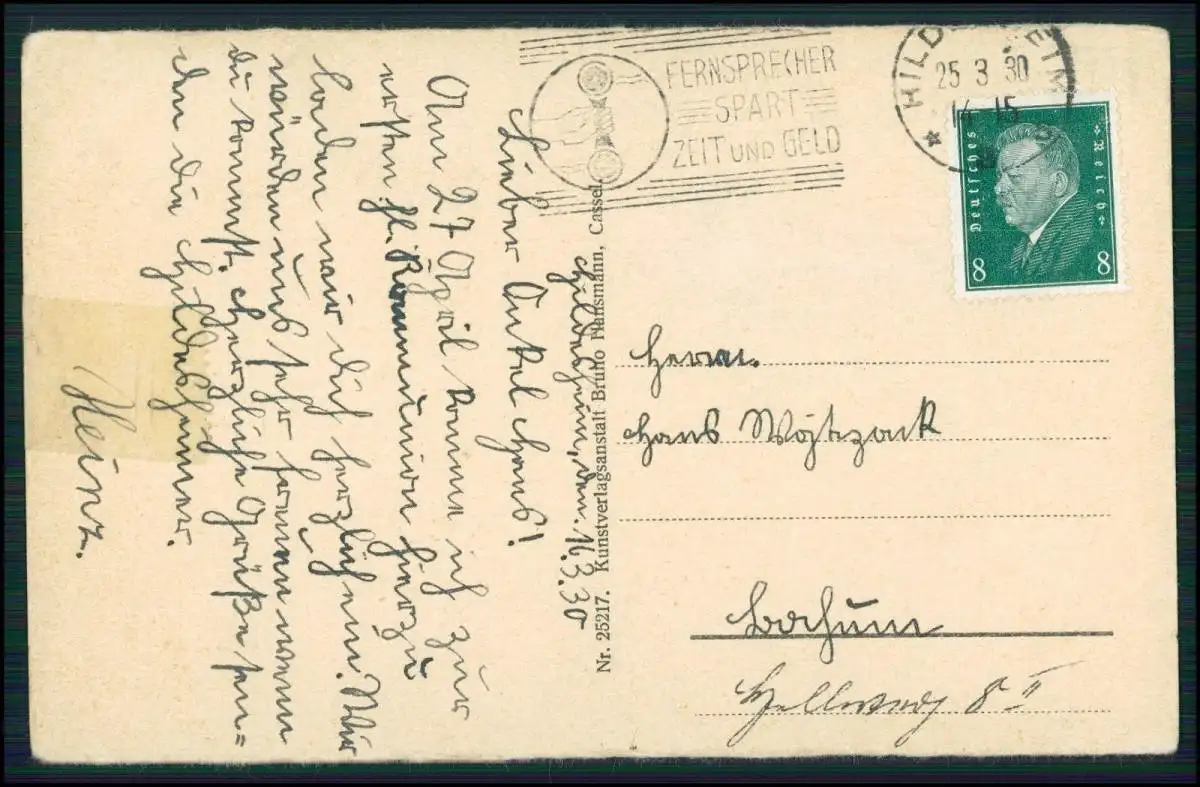 FERNSPRECHER
SPART
ZEIT UND GELD
HILD EIM
25 3 30
14-15
Deutsches Reich
8 8
Hildesheim, den 16.3.30
Lieber Onkel Hans!
Am 27 April komme ich zur
ersten hl. Kommunion hierzu
laden wir dich herzlich ein. Wir
würden uns sehr freuen wenn
du kommst. Herzliche Grüße sen=
den die Hildesheimer.
Heinz.
Nr. 25217. Kunstverlagsanstalt Bruno Hansmann, Cassel.
Herrn.
Hans Wojtzack
Bochum
Hellweg 8 II